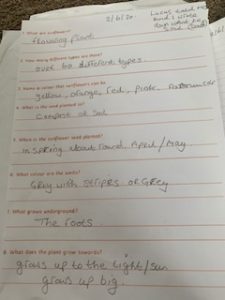 2/6/20.
Lucas told me
and I wrote
down what he
said
1. What are sunflowers?
flowering plant
2. How many different types are there?
over 60 different types.
3. Name a colour that sunflowers can be
yellow, orange, red, pink
4. What is the seed planted in?
Compost or soil
5. When is the sunflower seed planted?
in spring about round April / May
6. What colour are the seeds?
Grey with stripes or Grey
7. What grows underground?
The roots.
8. What does the plant grow towards?
grows up to the light / sun
grows up big.